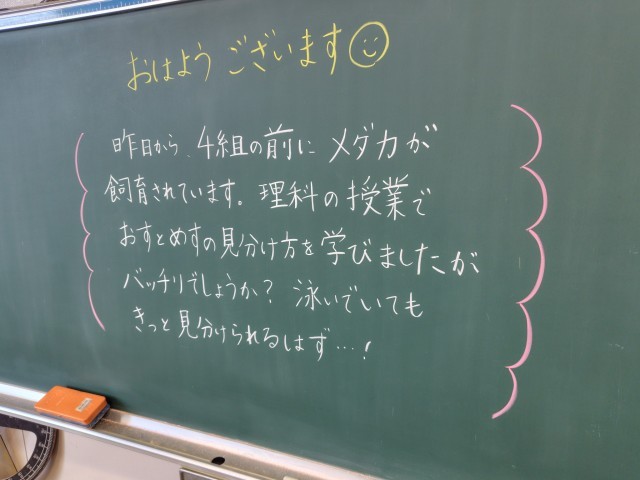 おはようございます
昨日から、4組の前にメダカが
飼育されています。理科の授業で
おすとめすの見分け方を学びましたが
バッチリでしょうか?泳いでいても
きっと見分けられるはず…!